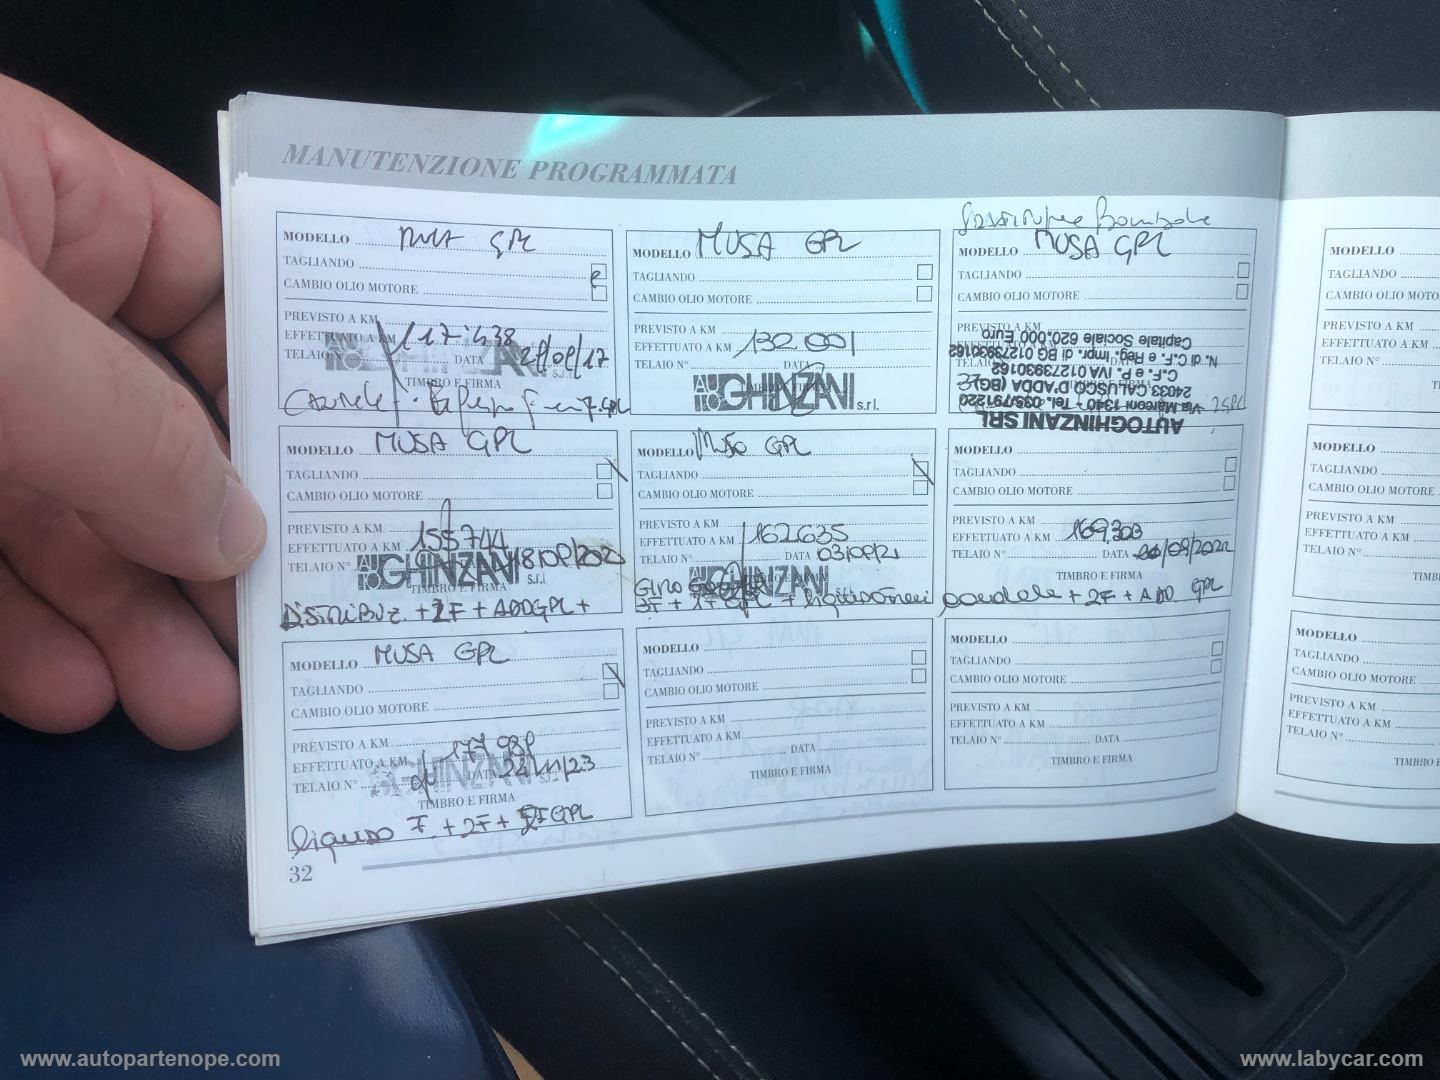 MANUTENZIONE PROGRAMMATA
MODELLO GPL
TAGLIANDO
CAMBIO OLIO MOTORE
PREVISTO A KM
EFFETTUATO A KM 117.438
TELAIO DATA
TIMBRO E FIRMA
GHINZANI s.r.l.
MODELLO MUSA GPL
TAGLIANDO
CAMBIO OLIO MOTORE
PREVISTO A KM
EFFETTUATO A KM 132.001
TELAIO N°
AUTO GHINZANI s.r.l.
Bombole
MODELLO MUSA GPL
TAGLIANDO
CAMBIO OLIO MOTORE
PREVISTO A KM
AUTOGHINZANI SRL
Via Marconi 1340 - Tel. 035/791220
24033 CALUSCO D'ADDA (BG)
C.F. e P. IVA 01273930162
N. di C.F. e Reg. Impr. di BG 01273930162
Capitale Sociale 620.000 Euro
MODELLO MUSA GPL
TAGLIANDO
CAMBIO OLIO MOTORE
PREVISTO A KM
EFFETTUATO A KM 155744
TELAIO N°
AUTO GHINZANI s.r.l.
TIMBRO E FIRMA
DISTRIBUZ. + 2F + ADDGPL +
MODELLO MUSA GPL
TAGLIANDO
CAMBIO OLIO MOTORE
PREVISTO A KM
EFFETTUATO A KM 162635
TELAIO N° DATA
GHINZANI
MODELLO
TAGLIANDO
CAMBIO OLIO MOTORE
PREVISTO A KM
EFFETTUATO A KM 169,303
TELAIO N° DATA
TIMBRO E FIRMA
candele + 2F + ADD. GPL
MODELLO MUSA GPL
TAGLIANDO
CAMBIO OLIO MOTORE
PREVISTO A KM
EFFETTUATO A KM
TELAIO N° DATA 24/11/23
GHINZANI
TIMBRO E FIRMA
liquido F. + 2F + GPL
MODELLO
TAGLIANDO
CAMBIO OLIO MOTORE
PREVISTO A KM
EFFETTUATO A KM
TELAIO N° DATA
TIMBRO E FIRMA
MODELLO
TAGLIANDO
CAMBIO OLIO MOTORE
PREVISTO A KM
EFFETTUATO A KM
TELAIO N° DATA
TIMBRO E FIRMA
32
MODELLO
TAGLIANDO
CAMBIO OLIO
PREVISTO A KM
EFFETTUATO A KM
TELAIO N°
MODELLO
TAGLIANDO
CAMBIO OLIO MOTORE
PREVISTO A KM
EFFETTUATO A KM
TELAIO N°
MODELLO
TAGLIANDO
CAMBIO OLIO
PREVISTO A KM
EFFETTUATO A KM
TELAIO N°
TIMBRO E
www.autopartenope.com
www.labycar.com